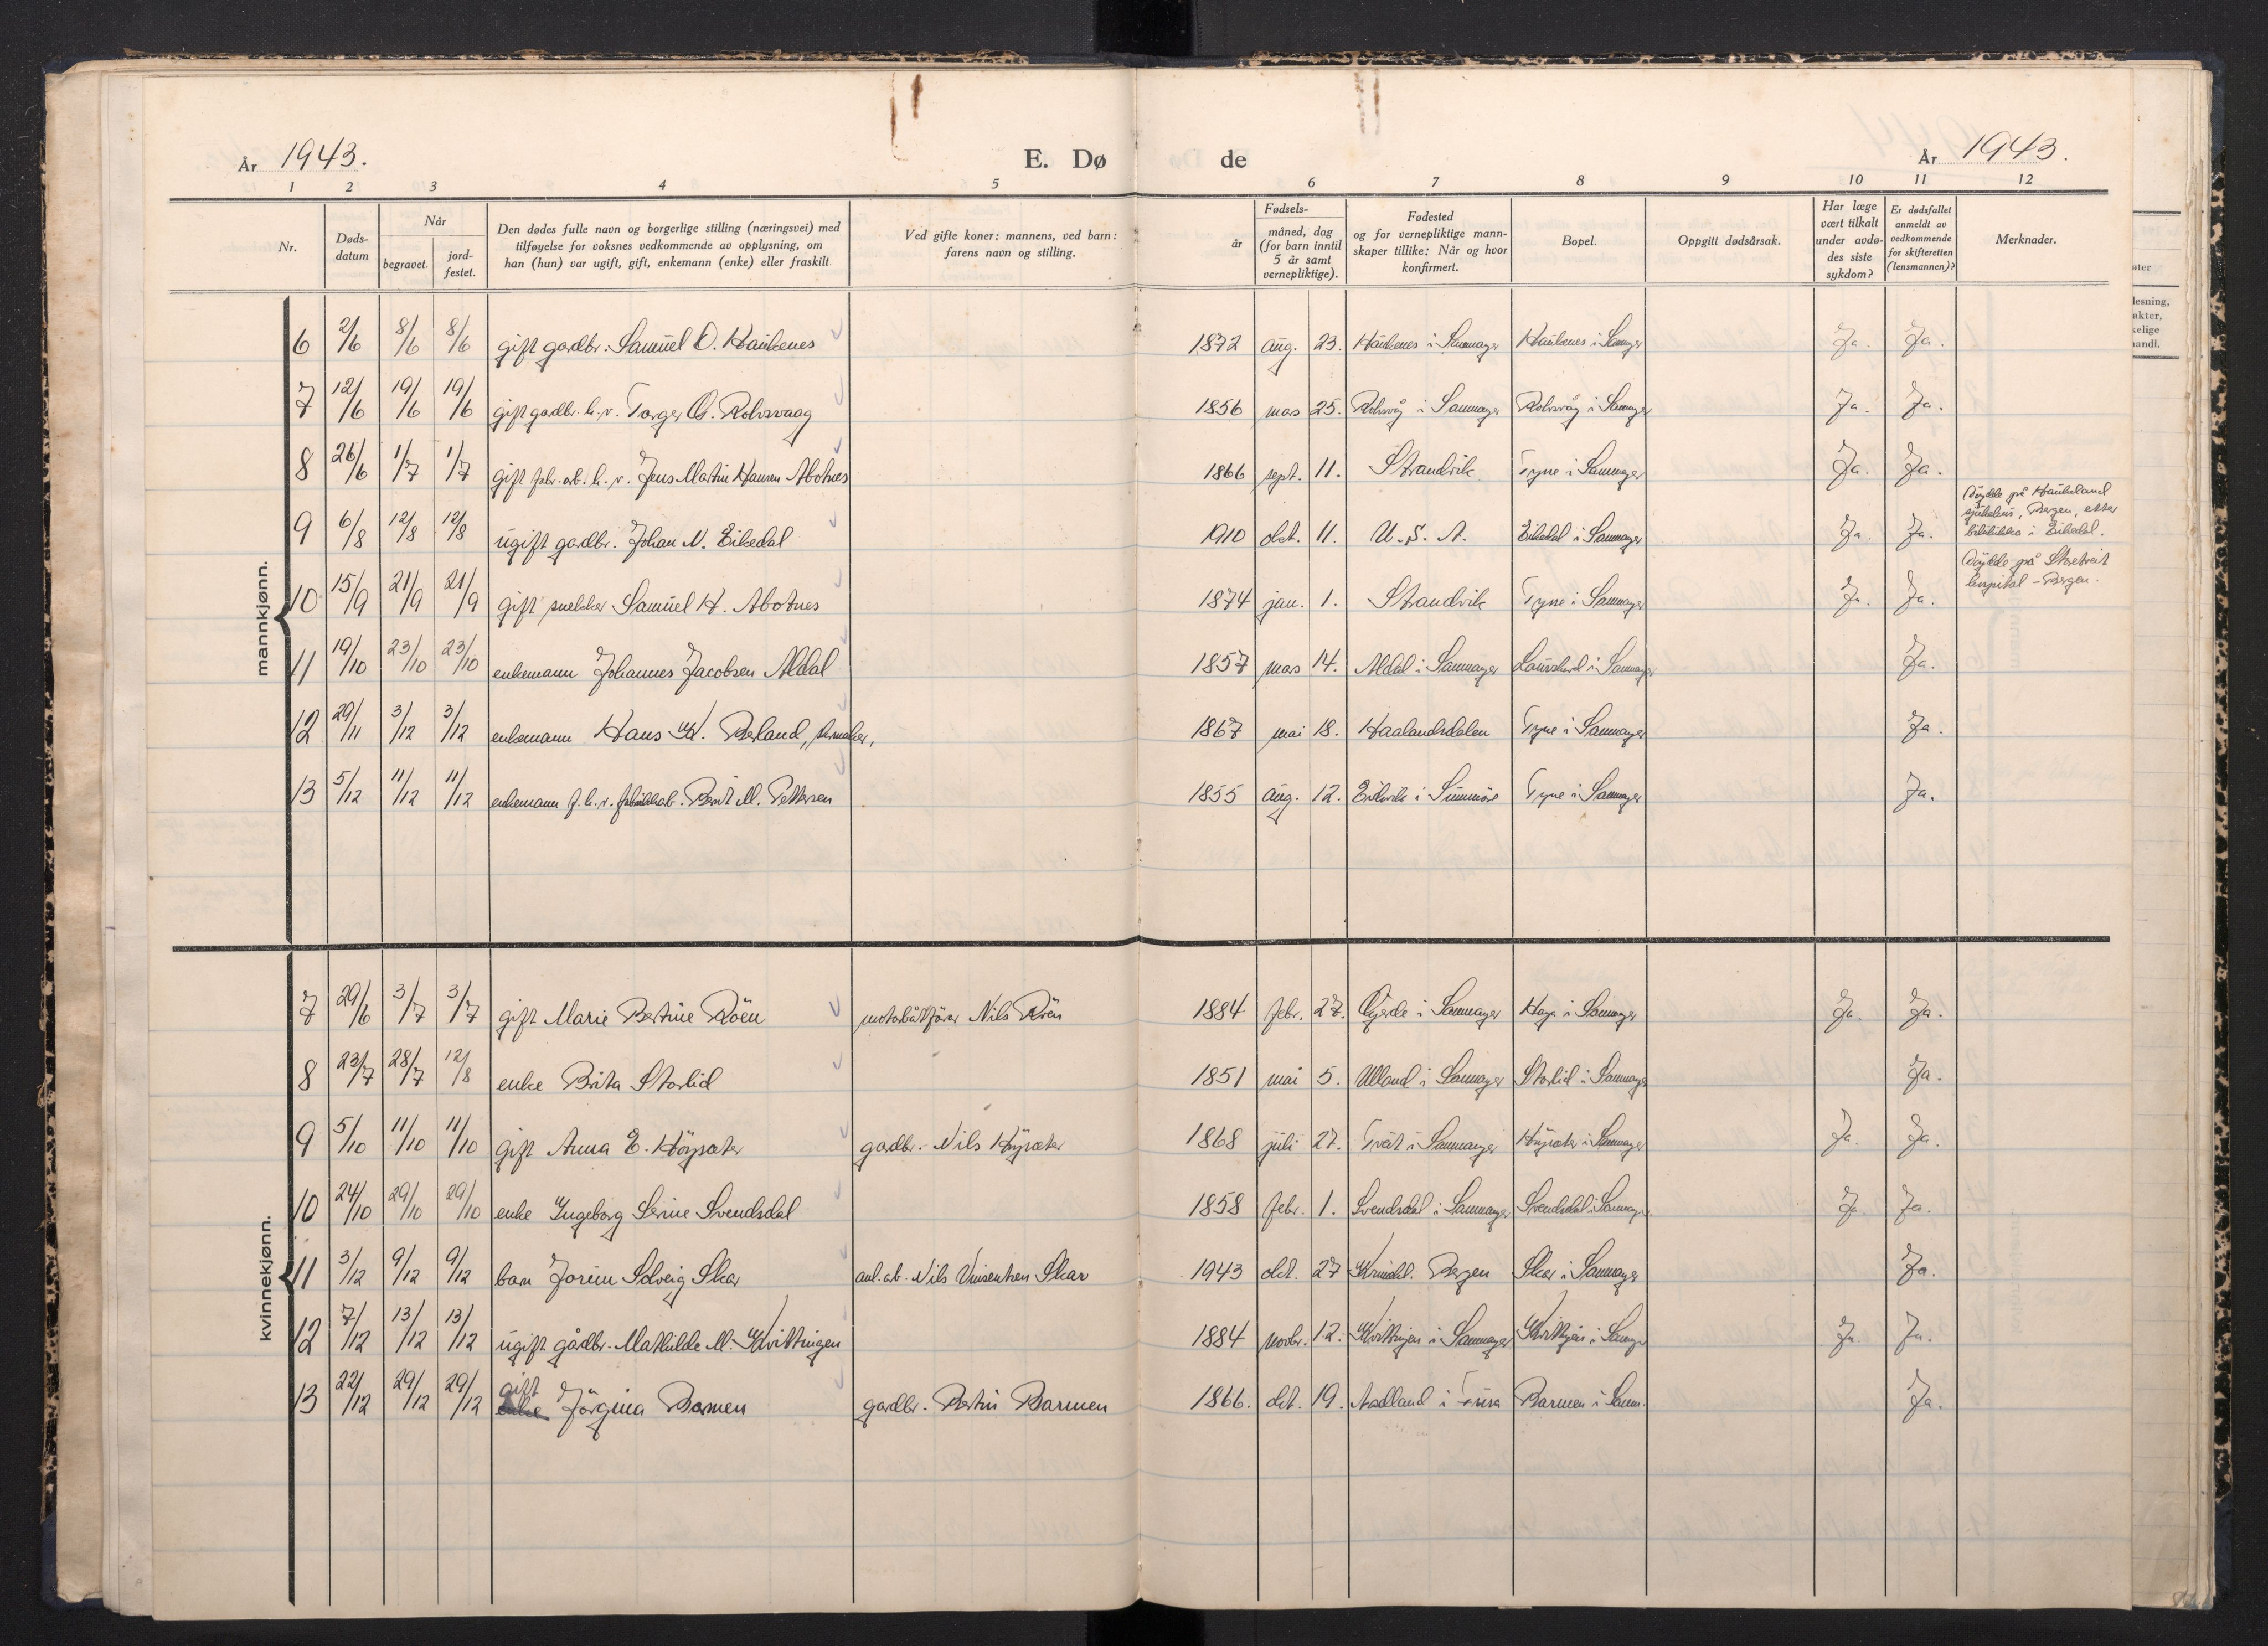 År 1943.
E. Dø de
År 1943.
1 2 3 4 5 6 7 8 9 10 11 12
Nr.
Døds-
datum
Når
begravet.
jord-
festet.
Den dødes fulle navn og borgerlige stilling (næringsvei) med
tilføyelse for voksnes vedkommende av opplysning, om
han (hun) var ugift, gift, enkemann (enke) eller fraskilt.
Ved gifte koner: mannens, ved barn:
farens navn og stilling.
Fødsels-
år
måned, dag
(for barn inntil
5 år samt
vernepliktige).
Fødested
og for vernepliktige mann-
skaper tillike: Når og hvor
konfirmert.
Bopel.
Oppgitt dødsårsak.
Har læge
vært tilkalt
under avdø-
des siste
sykdom?
Er dødsfallet
anmeldt av
vedkommende
for skifteretten
(lensmannen)?
Merknader.
mannkjønn.
6 2/6 8/6 8/6 gift gardbr. Samuel O. Haukenes 1872 aug. 23. Haukenes i Samnanger Haukenes i Samnanger Ja. Ja.
7 12/6 19/6 19/6 gift gardbr. h.v. Torger G. Rolvsvaag 1856 mars 25. Rolvsvåg i Samnanger Rolvsvåg i Samnanger Ja. Ja.
8 26/6 1/7 1/7 gift fabr.arb. h.v. Jens Martin Hansen Abotnes 1866 sept. 11. Strandvik Tysse i Samnanger Ja. Ja.
9 6/8 12/8 12/8 ugift gardbr. Johan N. Eikedal 1910 okt. 11. U.S.A. Eikedal i Samnanger Ja. Ja. Døydde på Haukeland
sjukehus, Bergen, etter
i Eikedal.
10 15/9 21/9 21/9 gift snekker Samuel H. Abotnes 1874 jan. 1. Strandvik Tysse i Samnanger Ja. Ja. Døydde på Storetveit
hospital - Bergen.
11 19/10 23/10 23/10 enkemann Johannes Jacobsen Aldal 1857 mars 14. Aldal i Samnanger i Samnanger Ja.
12 29/11 3/12 3/12 enkemann Hans K. Berland, urmaker, 1867 mai 18. Haalandsdalen Tysse i Samnanger Ja.
13 5/12 11/12 11/12 enkemann f.h.v. Bernt M. Pettersen 1855 aug. 12. i Sunnmøre Tysse i Samnanger Ja.
kvinnekjønn.
7 29/6 3/7 3/7 gift Marie Bertine Röen motorbåtfører Nils Röen 1884 febr. 27. Gjerde i Samnanger Haga i Samnanger Ja. Ja.
8 23/7 28/7 12/8 enke Brita Storlid 1851 mai 5. Ulland i Samnanger Storlid i Samnanger Ja.
9 5/10 11/10 11/10 gift Anna E. Höysæter gardbr. Nils Höysæter 1868 juli 27. Tveit i Samnanger Höysæter i Samnanger Ja. Ja.
10 24/10 29/10 29/10 enke Ingeborg Serine Svendsdal 1858 febr. 1. Svendsdal i Samnanger Svendsdal i Samnanger Ja. Ja.
11 3/12 9/12 9/12 barn Jorunn Solveig Skar anl.arb. Nils Vinsentsen Skar 1943 okt. 27 Kvinnekl. Bergen Skar i Samnanger Ja.
12 7/12 13/12 13/12 ugift gårdbr. Mathilde M. Kvittingen 1884 novbr. 12. Kvittingen i Samnanger Kvittingen i Samnanger Ja. Ja.
13 22/12 29/12 29/12 gift enke Jörgina Barmen gardbr. Bertin Barmen 1866. okt. 19. Aadland i Fusa Barmen i Samn. Ja.